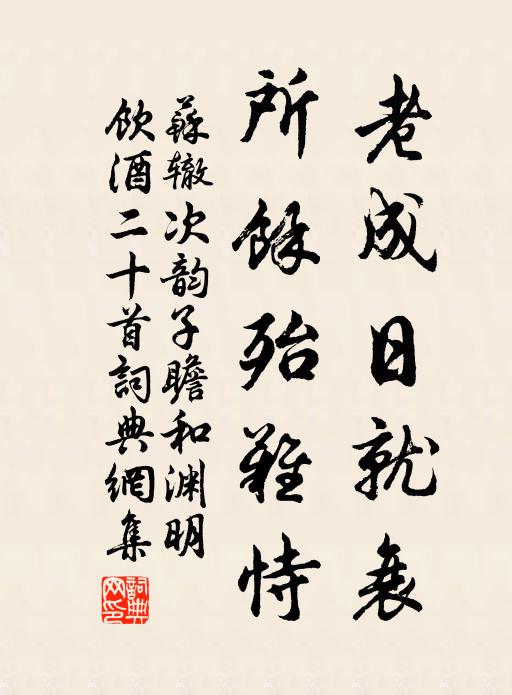 老成日就衰
所餘殆難恃
蘇辙次韵子瞻和渊明
飲酒二十首詞典網集
詞典网印